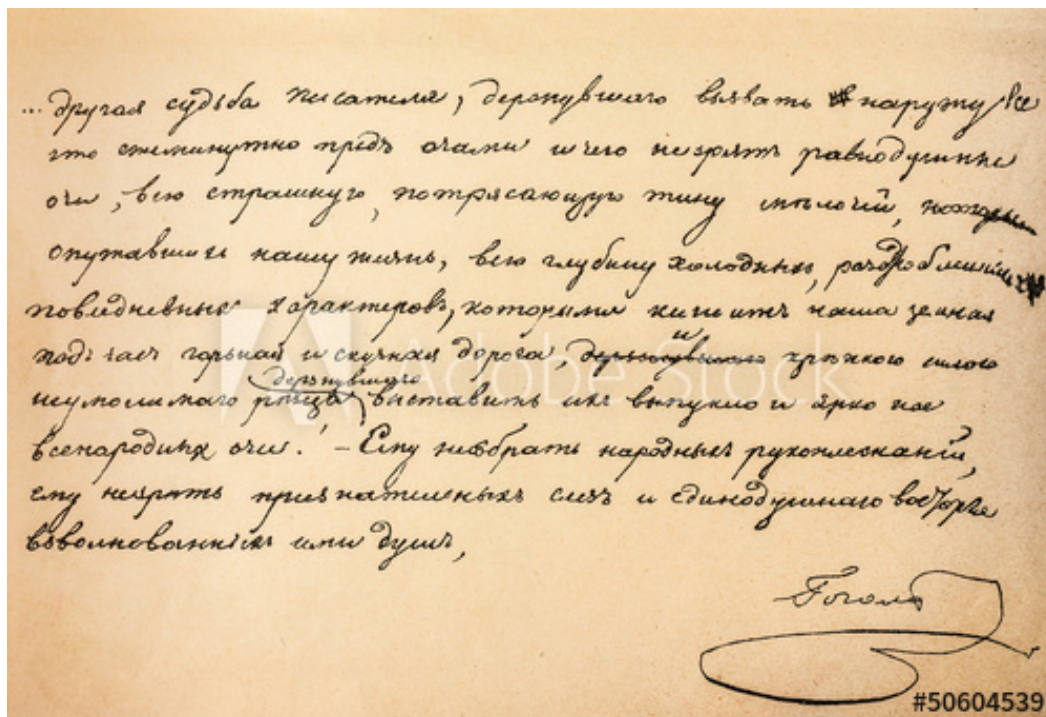 ... другая судьба писателя, дерзнувшаго вызвать наружу все
что ежеминутно предъ очами и чего незрятъ равнодушные
очи, всю страшную, потрясающую тину мѣлочей,
опутавшихъ нашу жизнь, всю глубину холодныхъ, раздробленныхъ
повседневныхъ характеровъ, которыми кишитъ наша земная
подъ часъ горькая и скучная дорога, и крѣпкою силою
неумолимаго рѣзца дерзнувшаго выставить ихъ выпукло и ярко на
всенародныя очи! – Ему несобрать народныхъ рукоплесканій,
ему незрѣть признательныхъ слезъ и единодушнаго восторга
взволнованныхъ ими душъ,
Гоголь
Adobe Stock
#50604539